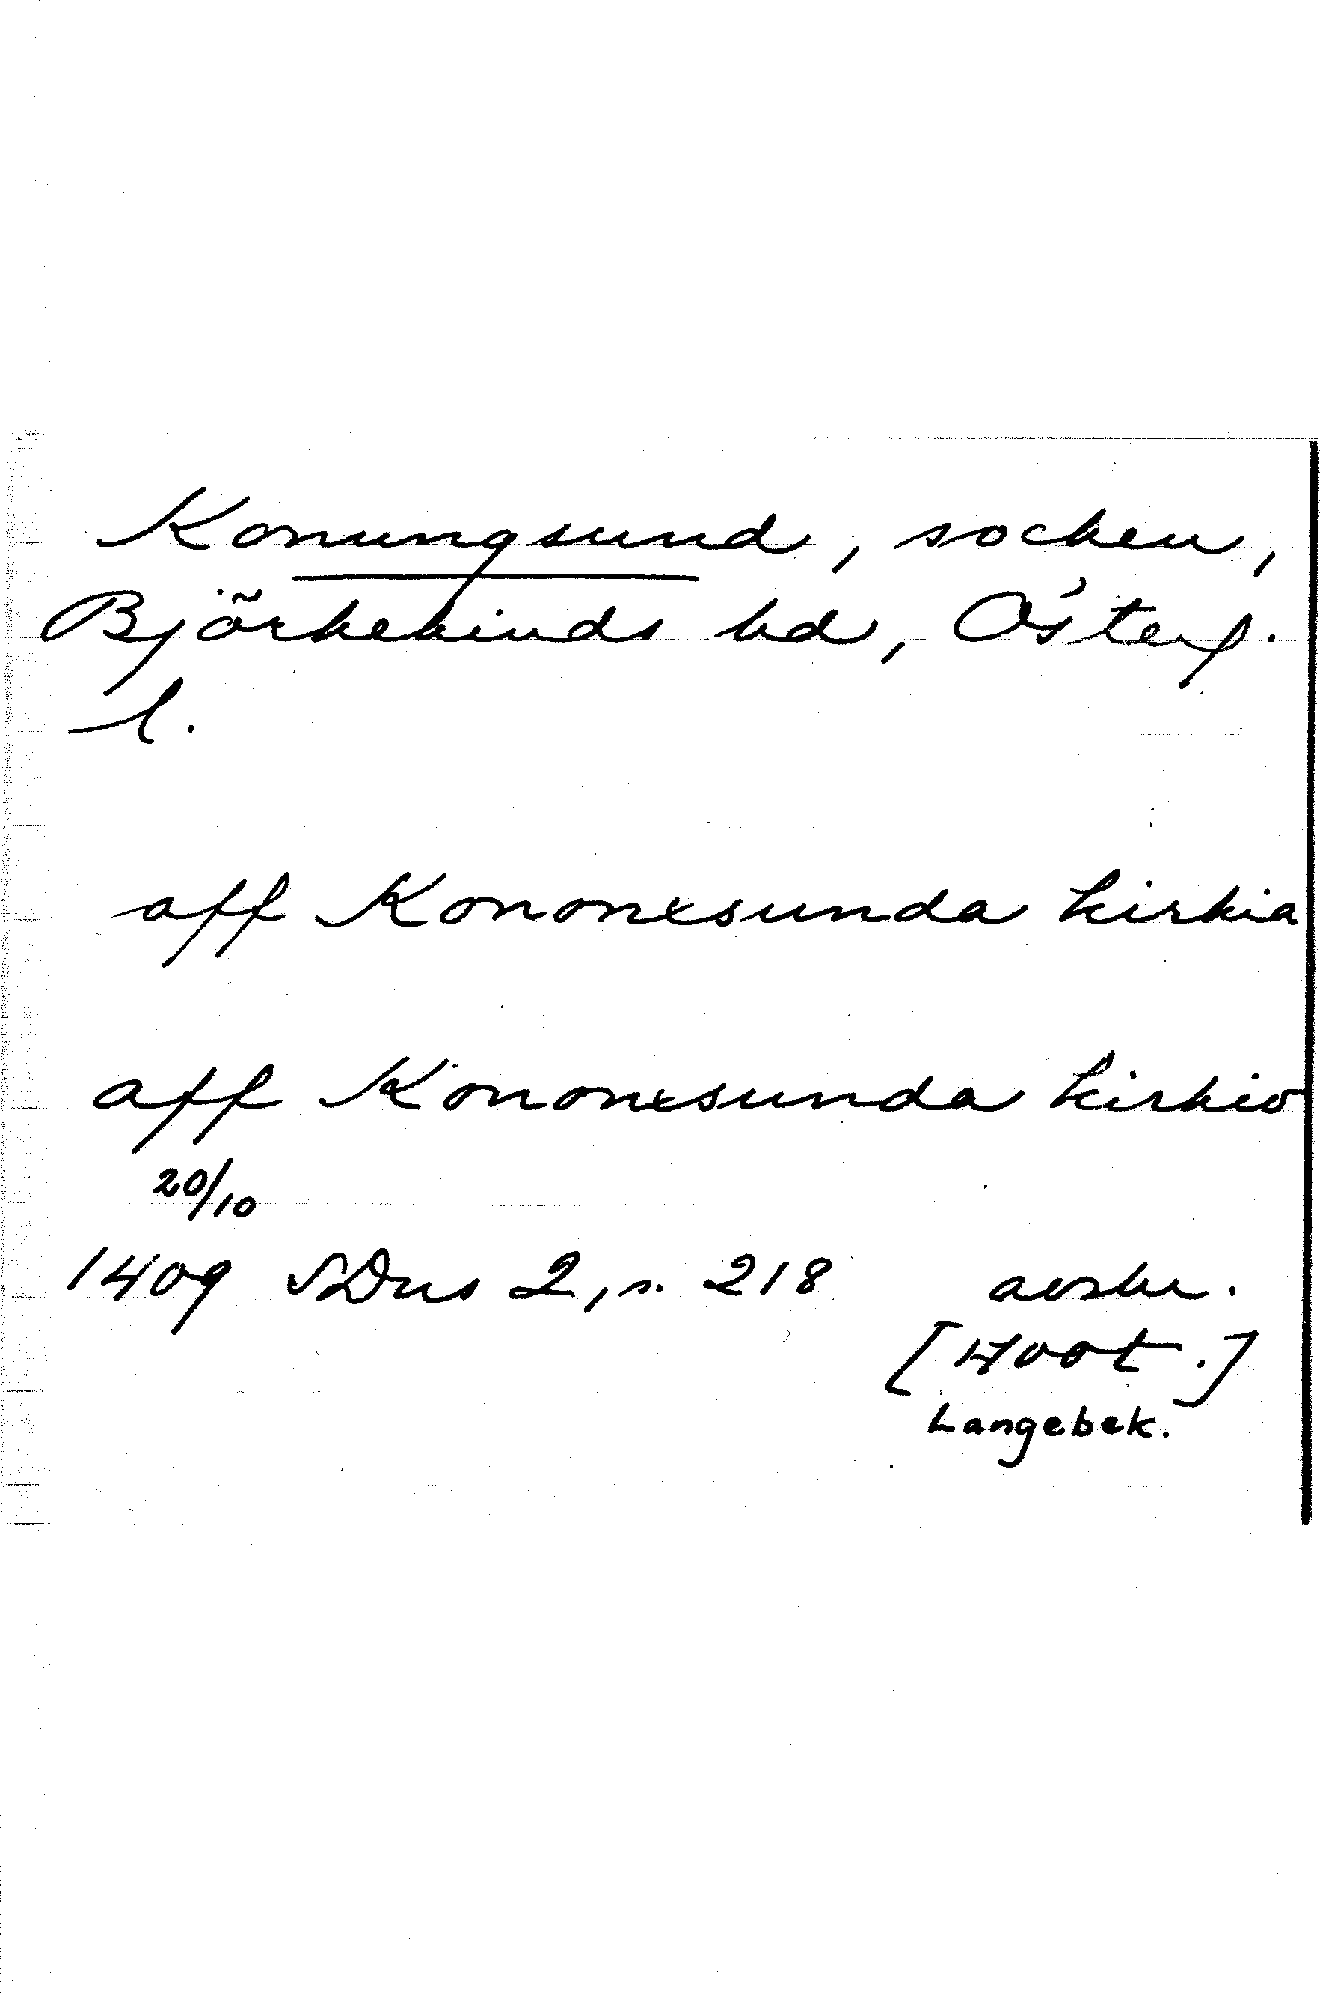 Konungsund, socken,
Björkekinds hd, Österg.
l.
aff Kononxsunda kirkia
aff Kononxsunda kirkio
20/10
1409 SDns 2, s. 218 avskr.
Langebek.